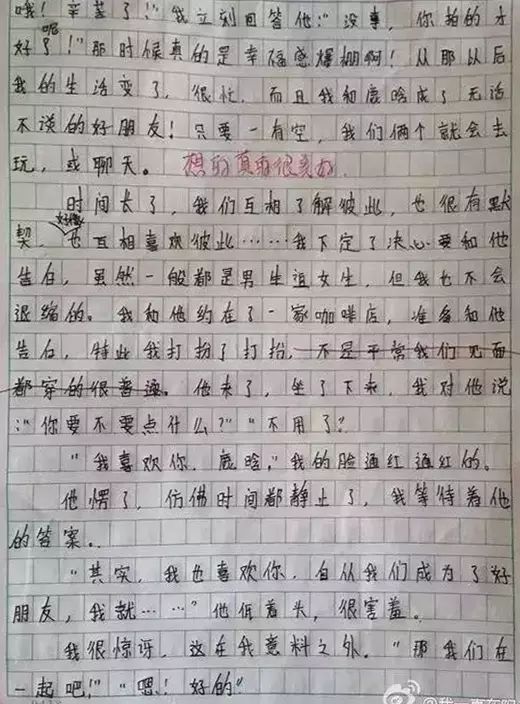 哦！辛苦了！”我立刻回答他：“没事，你拍的才
好呢！”那时候真的是幸福感爆棚啊！从那以后
我的生活变了，很忙，而且我和鹿晗成了无话
不谈的好朋友！只要一有空，我们俩个就会去
玩，或聊天。 想的真的很美好。
时间长了，我们互相了解彼此，也很有默
契，好像也互相喜欢彼此……我下定了决心要和他
告白，虽然一般都是男生追女生，但我也不会
退缩的。我和他约在了一家咖啡店，准备和他
告白，特此我打扮了打扮，不是平常我们见面
都穿的很普通。他来了，坐了下来，我对他说
：“你要不要点什么？”“不用了。”
“我喜欢你，鹿晗，”我的脸通红通红的。
他愣了，仿佛时间都静止了，我等待着他
的答案。
“其实，我也喜欢你，自从我们成为了好
朋友，我就……”他低着头，很害羞。
我很惊讶，这在我意料之外。“那我们在
一起吧！”“嗯！好的”